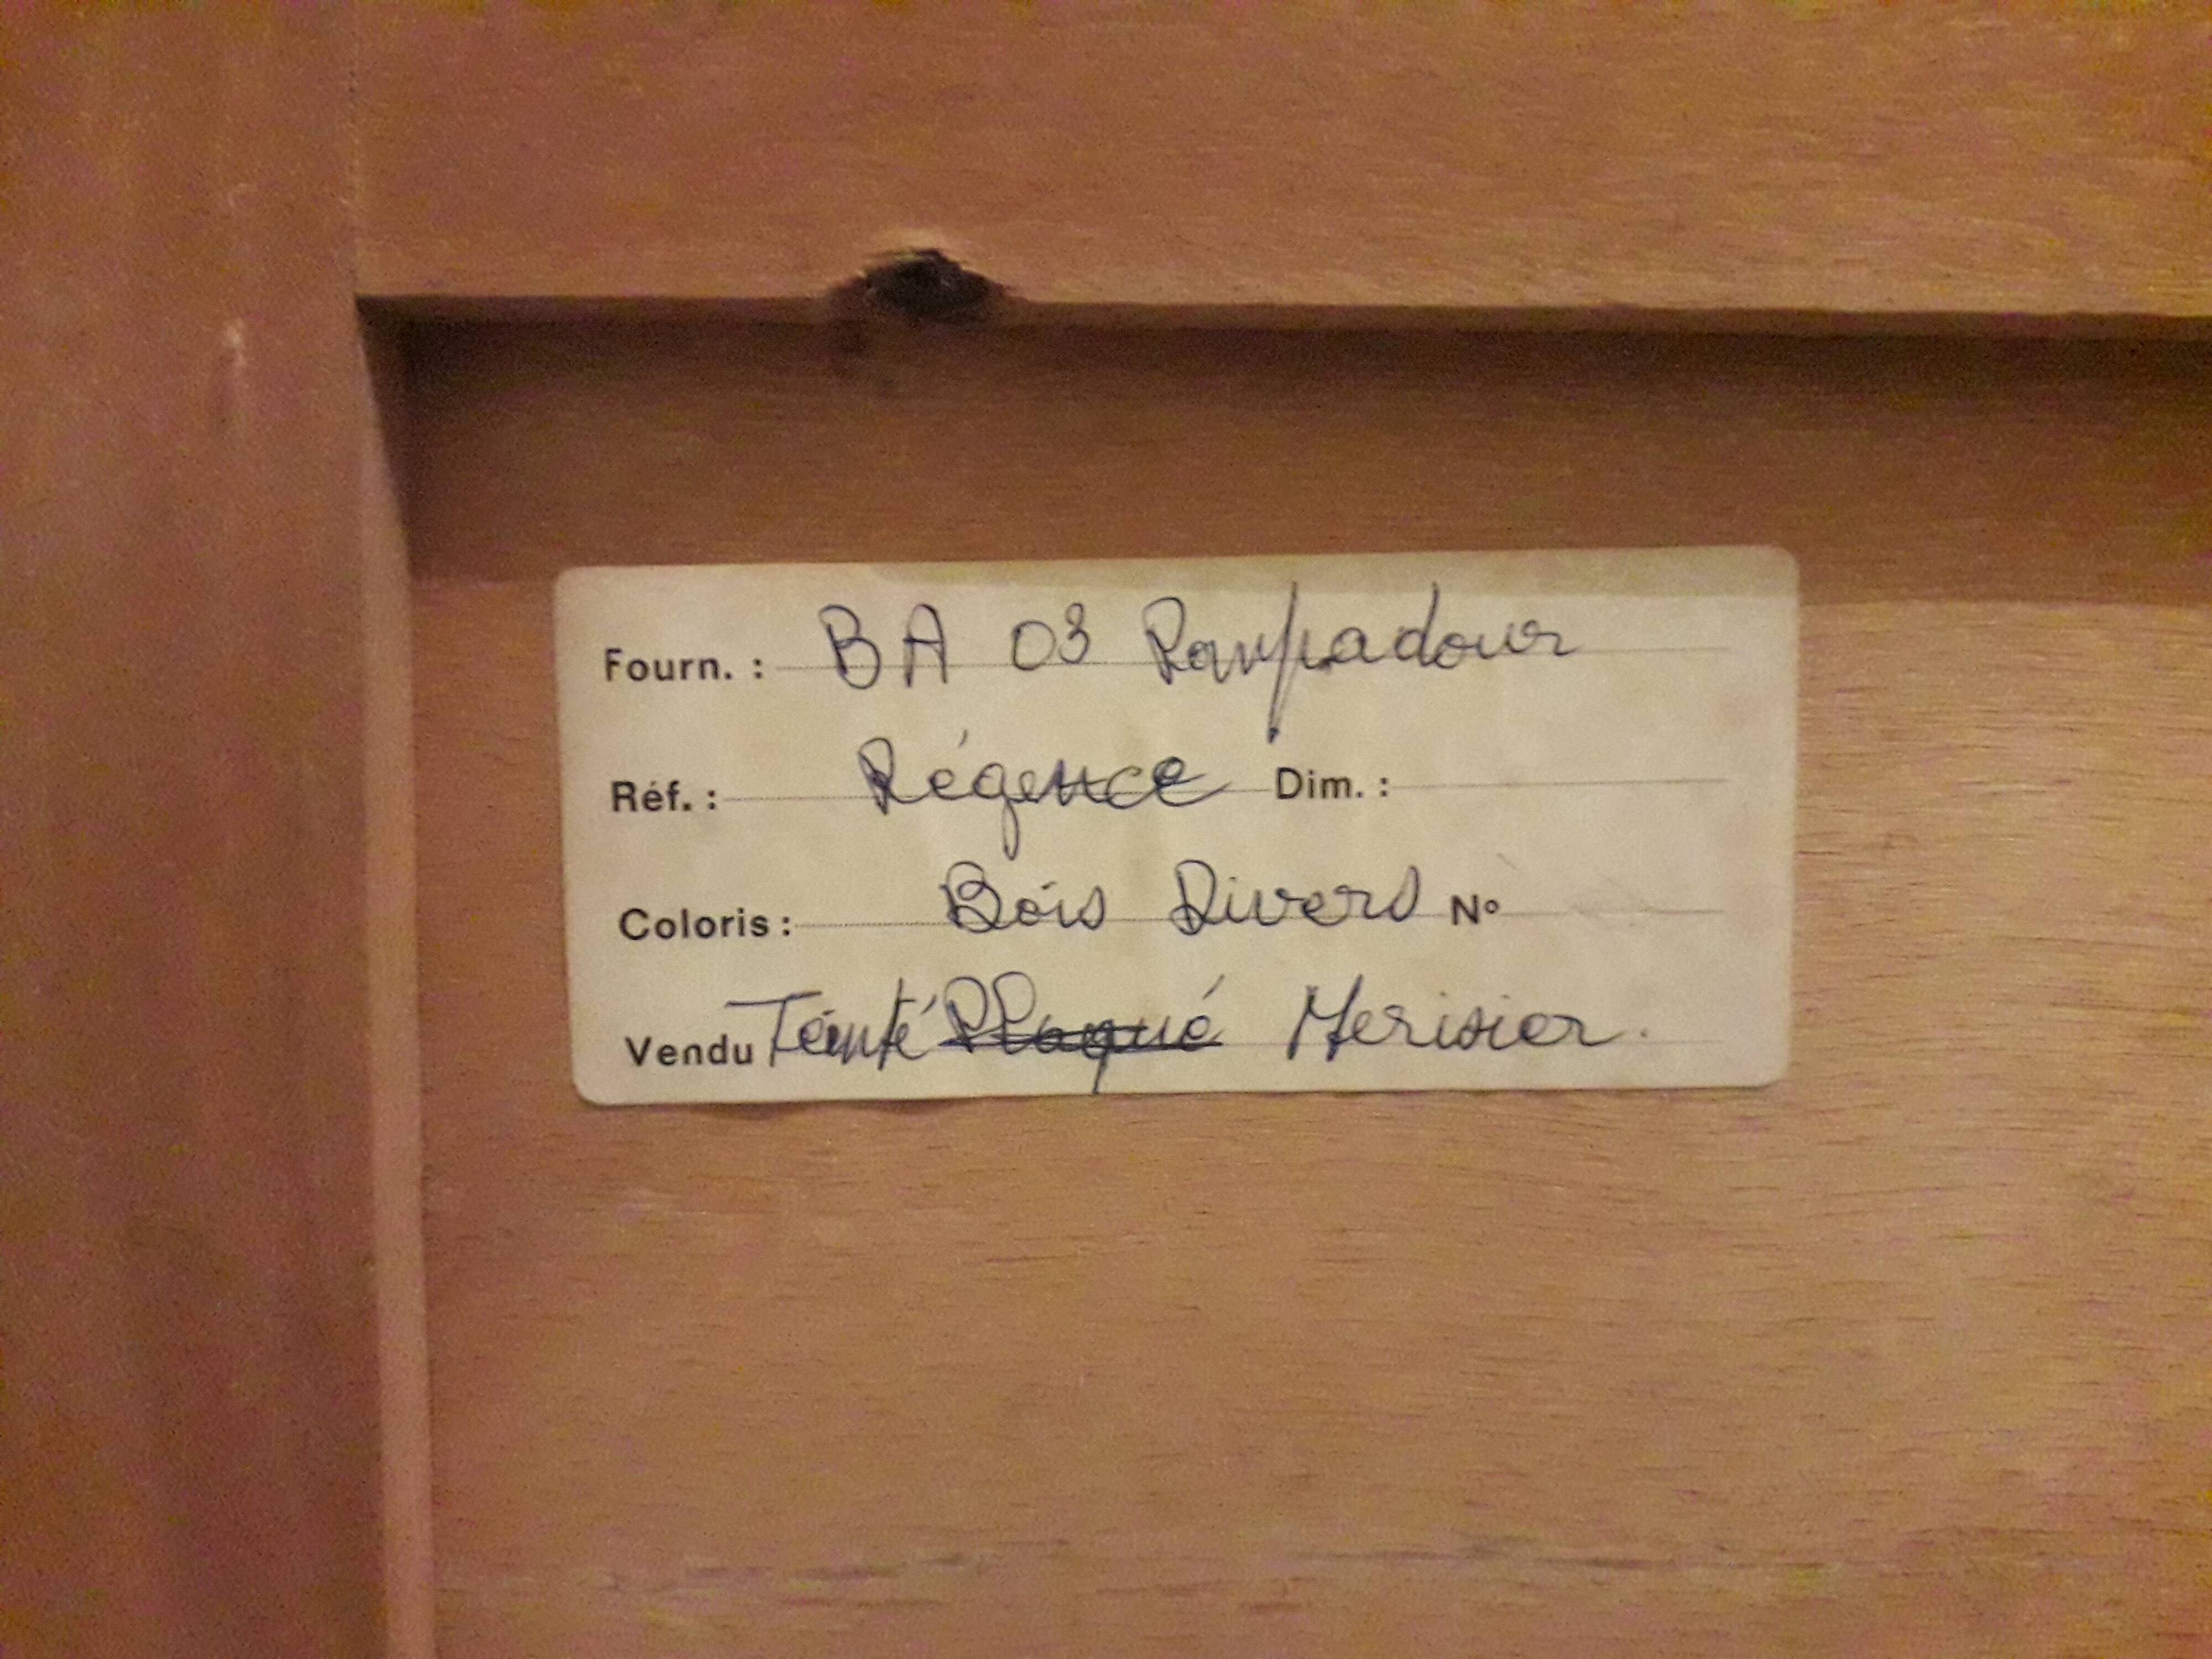 Fourn. : BA 03 Pompadour
Réf. : Régence Dim. :
Coloris : Bois Divers N°
Vendu Teinté Plaqué Merisier.